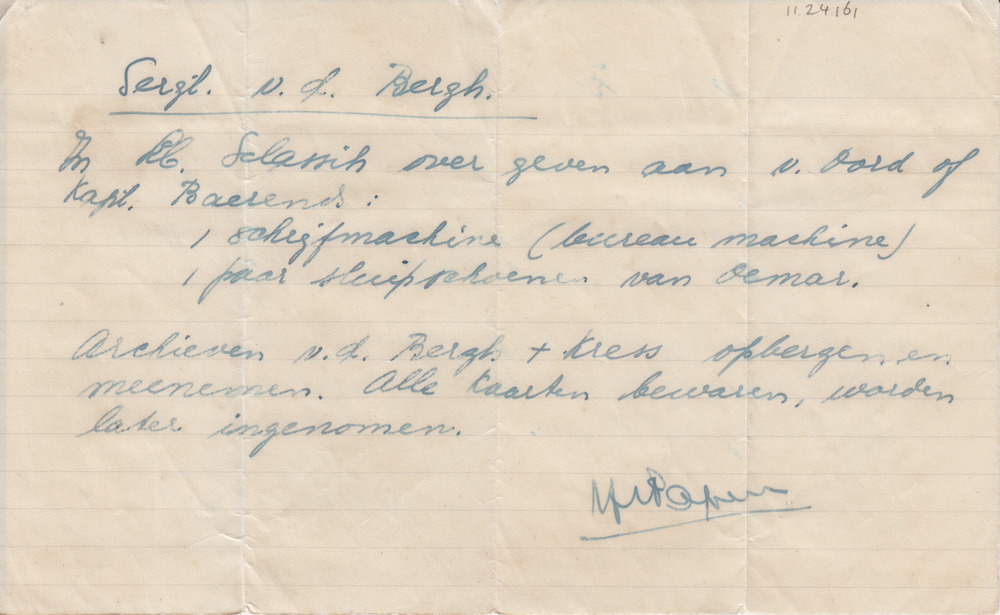 11.24161
Sergt. v. d. Bergh.
In kl. Selassih over geven aan v. Oord of
Kapt. Baerends:
1 schrijfmachine (bureau machine)
1 paar sluipschoenen van Oemar.
Archieven v.d. Bergh + Kress opbergen en
meenemen. Alle kaarten bewaren, worden
later ingenomen.